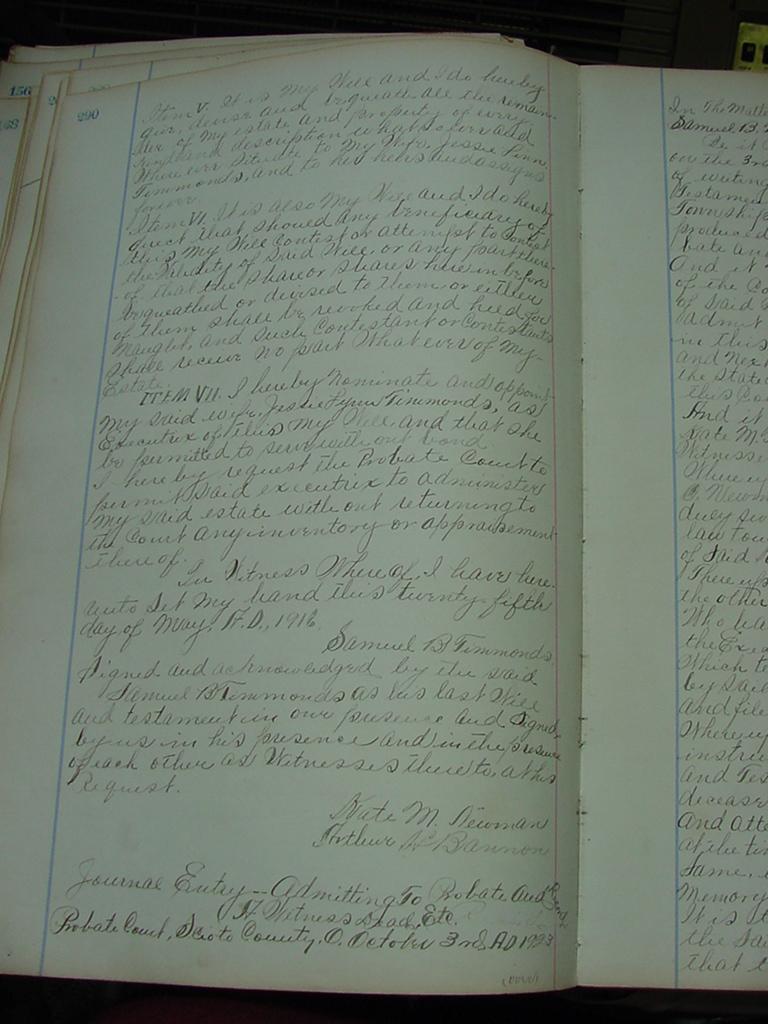 156
290
168
Item V. It is My Will and I do hereby
give, devise and bequeath all the remain-
der of My estate and property of every
kind and description whatsoever and
Where ever Situate to My Wife, Jessie Lynn
Timmonds, and to her heirs and assigns
forever.
Item VI. It is also My Will and I do hereby
direct that should Any beneficiary of
this My Will Contest or attempt to Contest
the Validity of Said Will, or any part there-
of that the share or shares herein before
bequeathed or devised to them or either
of them shall be revoked and held for
Naught, and Such Contestant or Contestants
shall receive no part What ever of My
Estate.
ITEM VII. I hereby Nominate and appoint
My said wife, Jessie Lynn Timmonds, as
Executrix of this My Will and that she
be permitted to serve with out bond.
I hereby request the Probate Court to
permit said executrix to administer
My said estate with out returning to
the Court any inventory or appraisement
there of.
In Witness Where of, I have here-
unto Set My hand this twenty-fifth
day of May, A.D., 1916.
Samuel B Timmonds.
Signed and acknowledged by the said
Samuel B Timmonds as his last Will
and testament in our presence and Signed
by us in his presence and in the presence
of each other as Witnesses there to, at his
Request.
Kate M. Newman
Arthur H Bannon
Journal Entry — Admitting To Probate And Record
A Witness Dead, Etc.
Probate Court, Scioto County, O. October 3rd, A.D. 1923
In The Matte
Samuel B.
Be it
on the 3rd
of writing
Testamen
Township
produced
bate and
And it
of the Co
of said
admit
in this
and Nex
the State
this Co
And it
Kate M.
Witnesse
Where u
C. Newm
duly sw
law tou
of Said
There up
the other
Who ha
the Exe
Which te
by said
and file
Where u
instru
and Tes
decease
And atte
at the tim
Same,
Memory
It is t
the Sai
that t